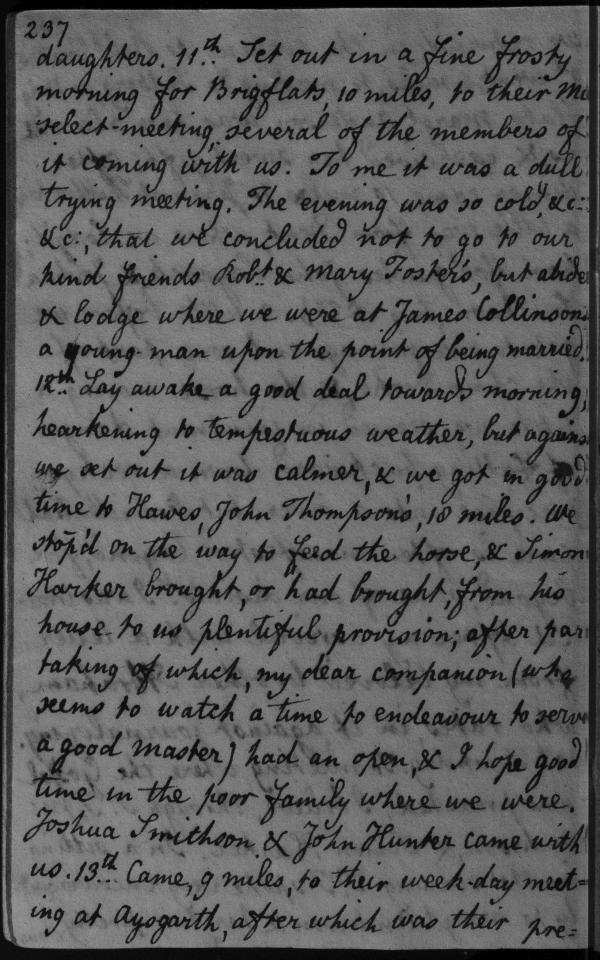 237
daughters. 11th. Set out in a fine frosty
morning for Brigflats, 10 miles, to their
select-meeting, several of the members of
it coming with us. To me it was a dull
trying meeting. The evening was so cold, &c:
&c:, that we concluded not to go to our
kind friends Robt. & Mary Foster's, but abide
& lodge where we were at James Collinson's
a young man upon the point of being married.
12th. Lay awake a good deal towards morning,
hearkening to tempestuous weather, but agains
we set out it was calmer, & we got in good
time to Hawes, John Thompson's, 18 miles. We
stop'd on the way to feed the horse, & Simon
Harker brought, or had brought, from his
house to us plentiful provision; after par
taking of which, my dear companion (who
seems to watch a time to endeavour to serve
a good master) had an open, & I hope good
time in the poor family where we were.
Joshua Smithson & John Hunter came with
us. 13th. Came, 9 miles, to their week-day meet=
ing at Aysgarth, after which was their pre=